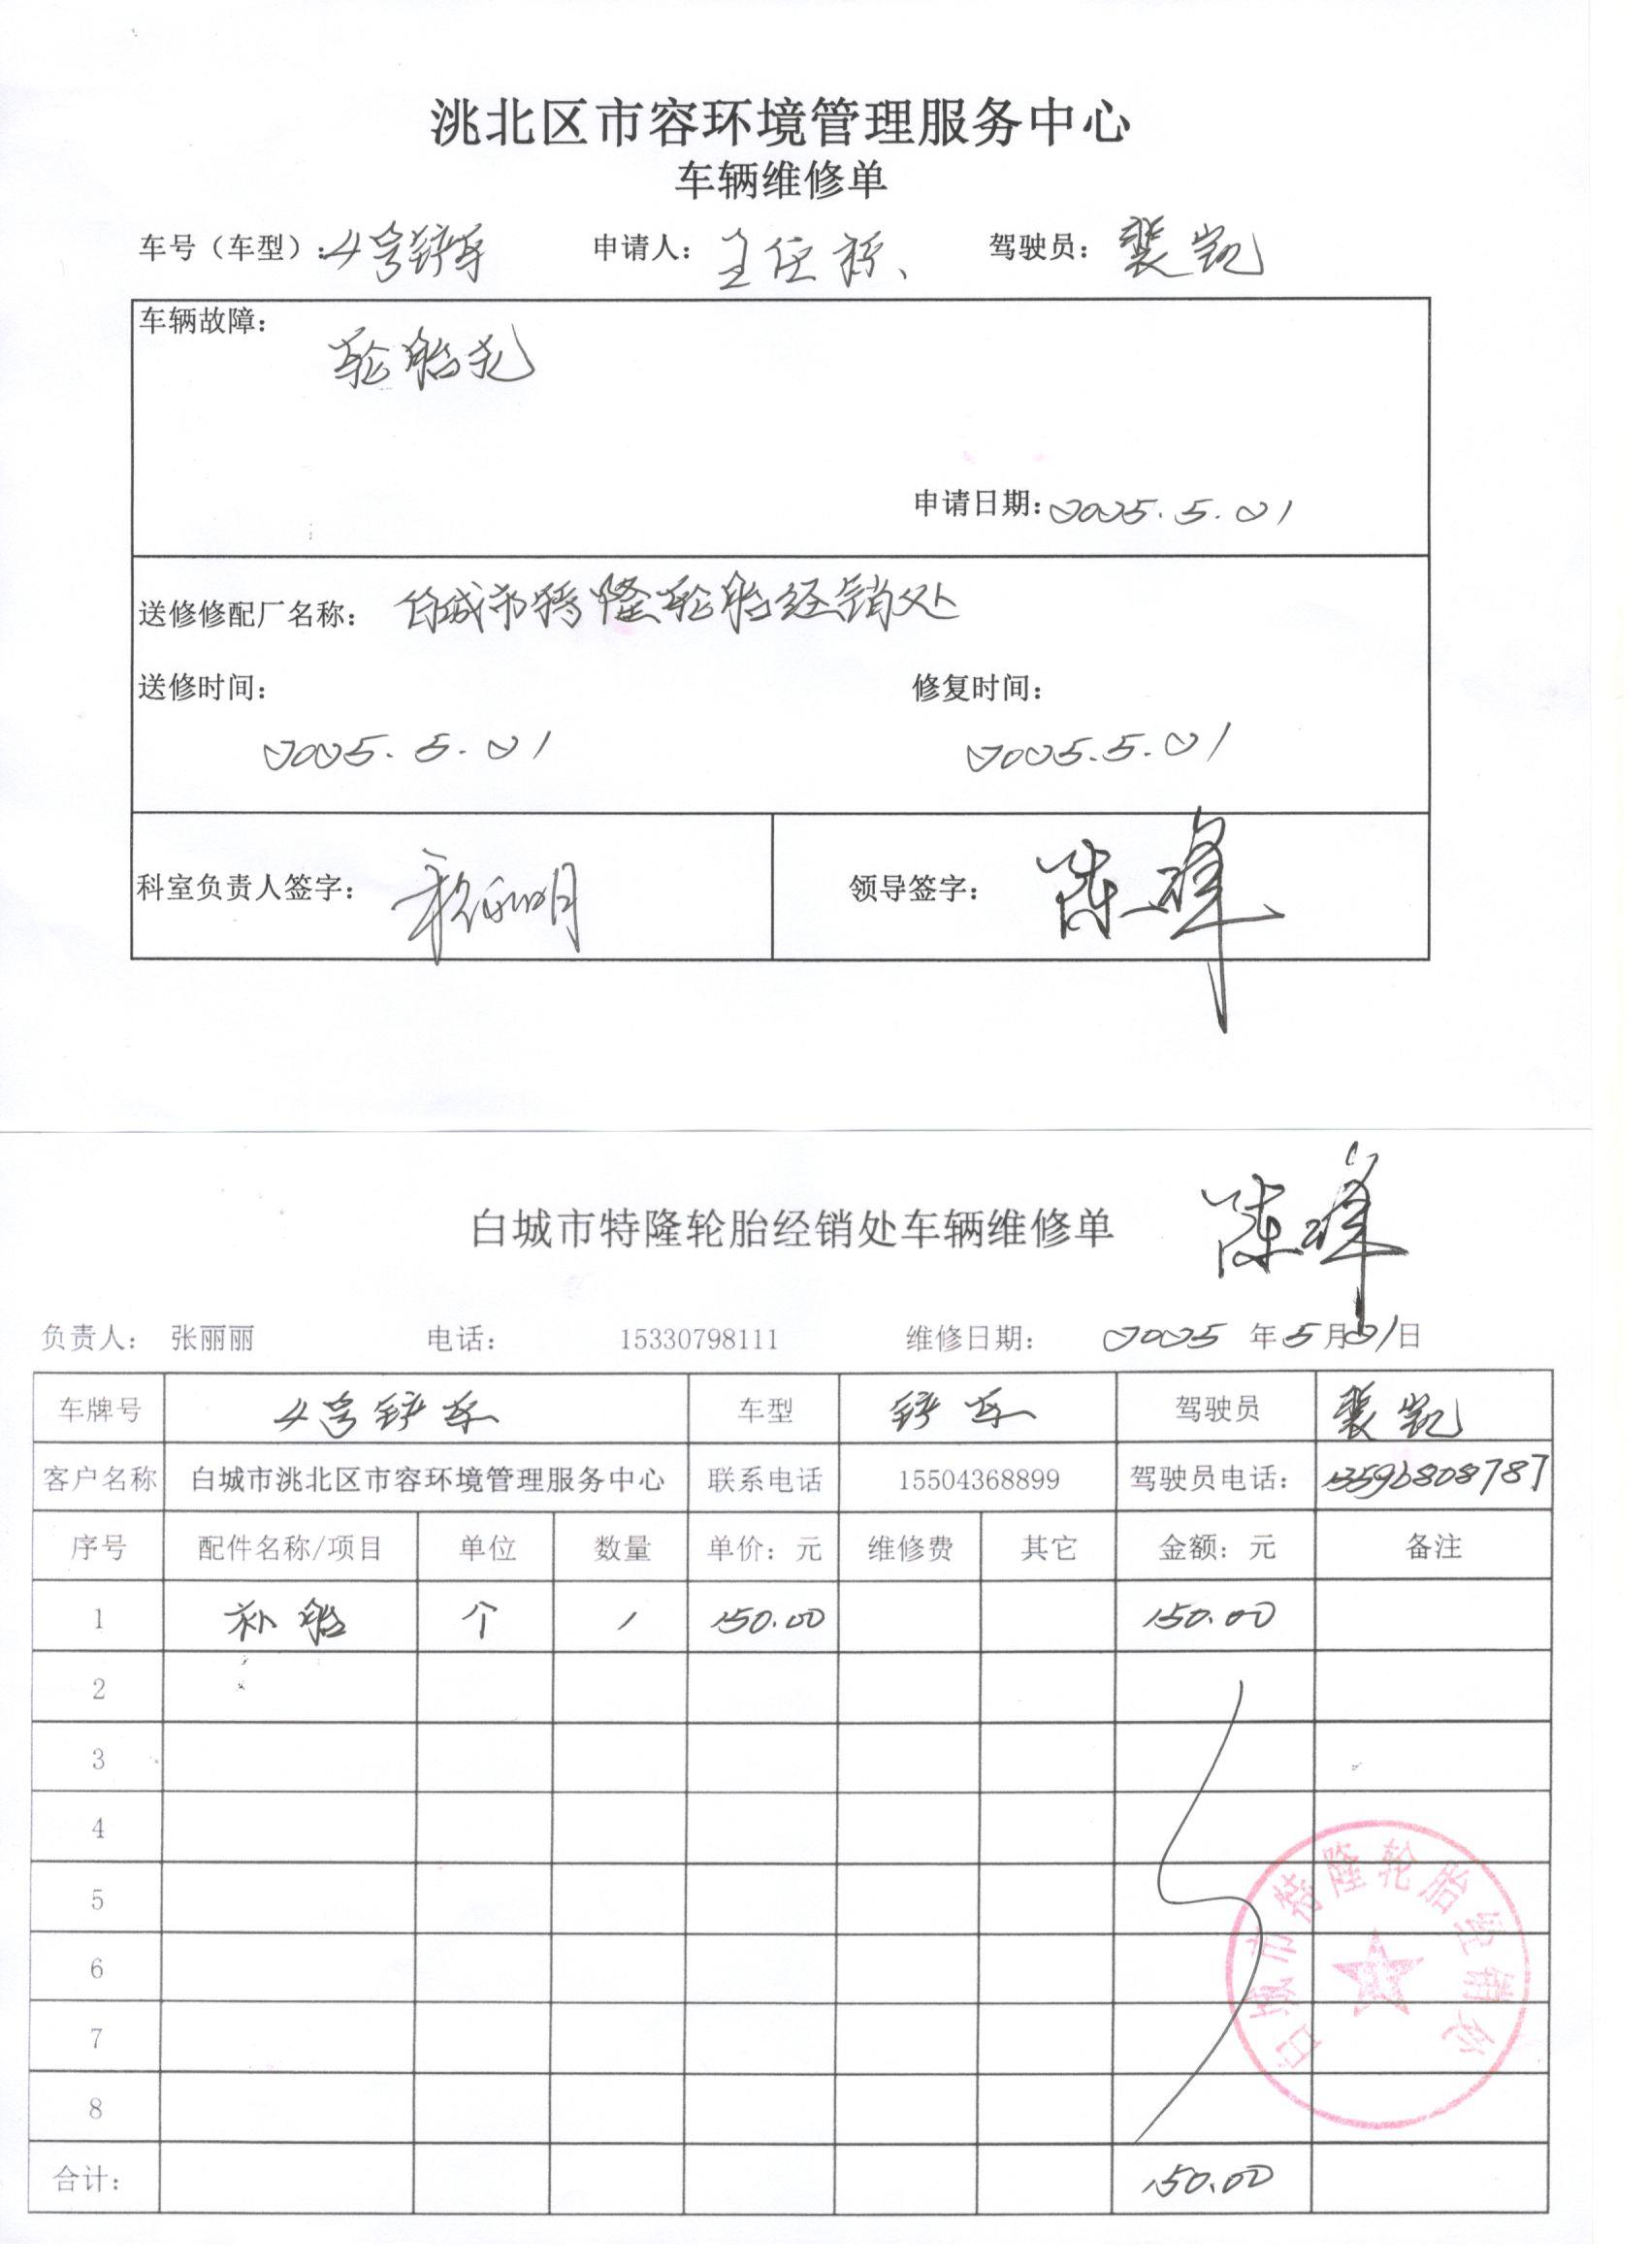 洮北区市容环境管理服务中心
车辆维修单
车号（车型）：4号铲车 申请人： 驾驶员：裴凯
车辆故障：
轮胎扎
申请日期：2025.5.21
送修修配厂名称：白城市特隆轮胎经销处
送修时间： 修复时间：
2025.5.21 2025.5.21
科室负责人签字： 领导签字：陈峰
白城市特隆轮胎经销处车辆维修单 陈峰
负责人： 张丽丽 电话： 15330798111 维修日期： 2025 年 5 月 21 日
车牌号 4号铲车 车型 铲车 驾驶员 裴凯
客户名称 白城市洮北区市容环境管理服务中心 联系电话 15504368899 驾驶员电话： 13596808787
序号 配件名称/项目 单位 数量 单价：元 维修费 其它 金额：元 备注
1 补胎 个 1 150.00 150.00
2
3
4
5
6
7
8
合计： 150.00
白城市特隆轮胎经销处